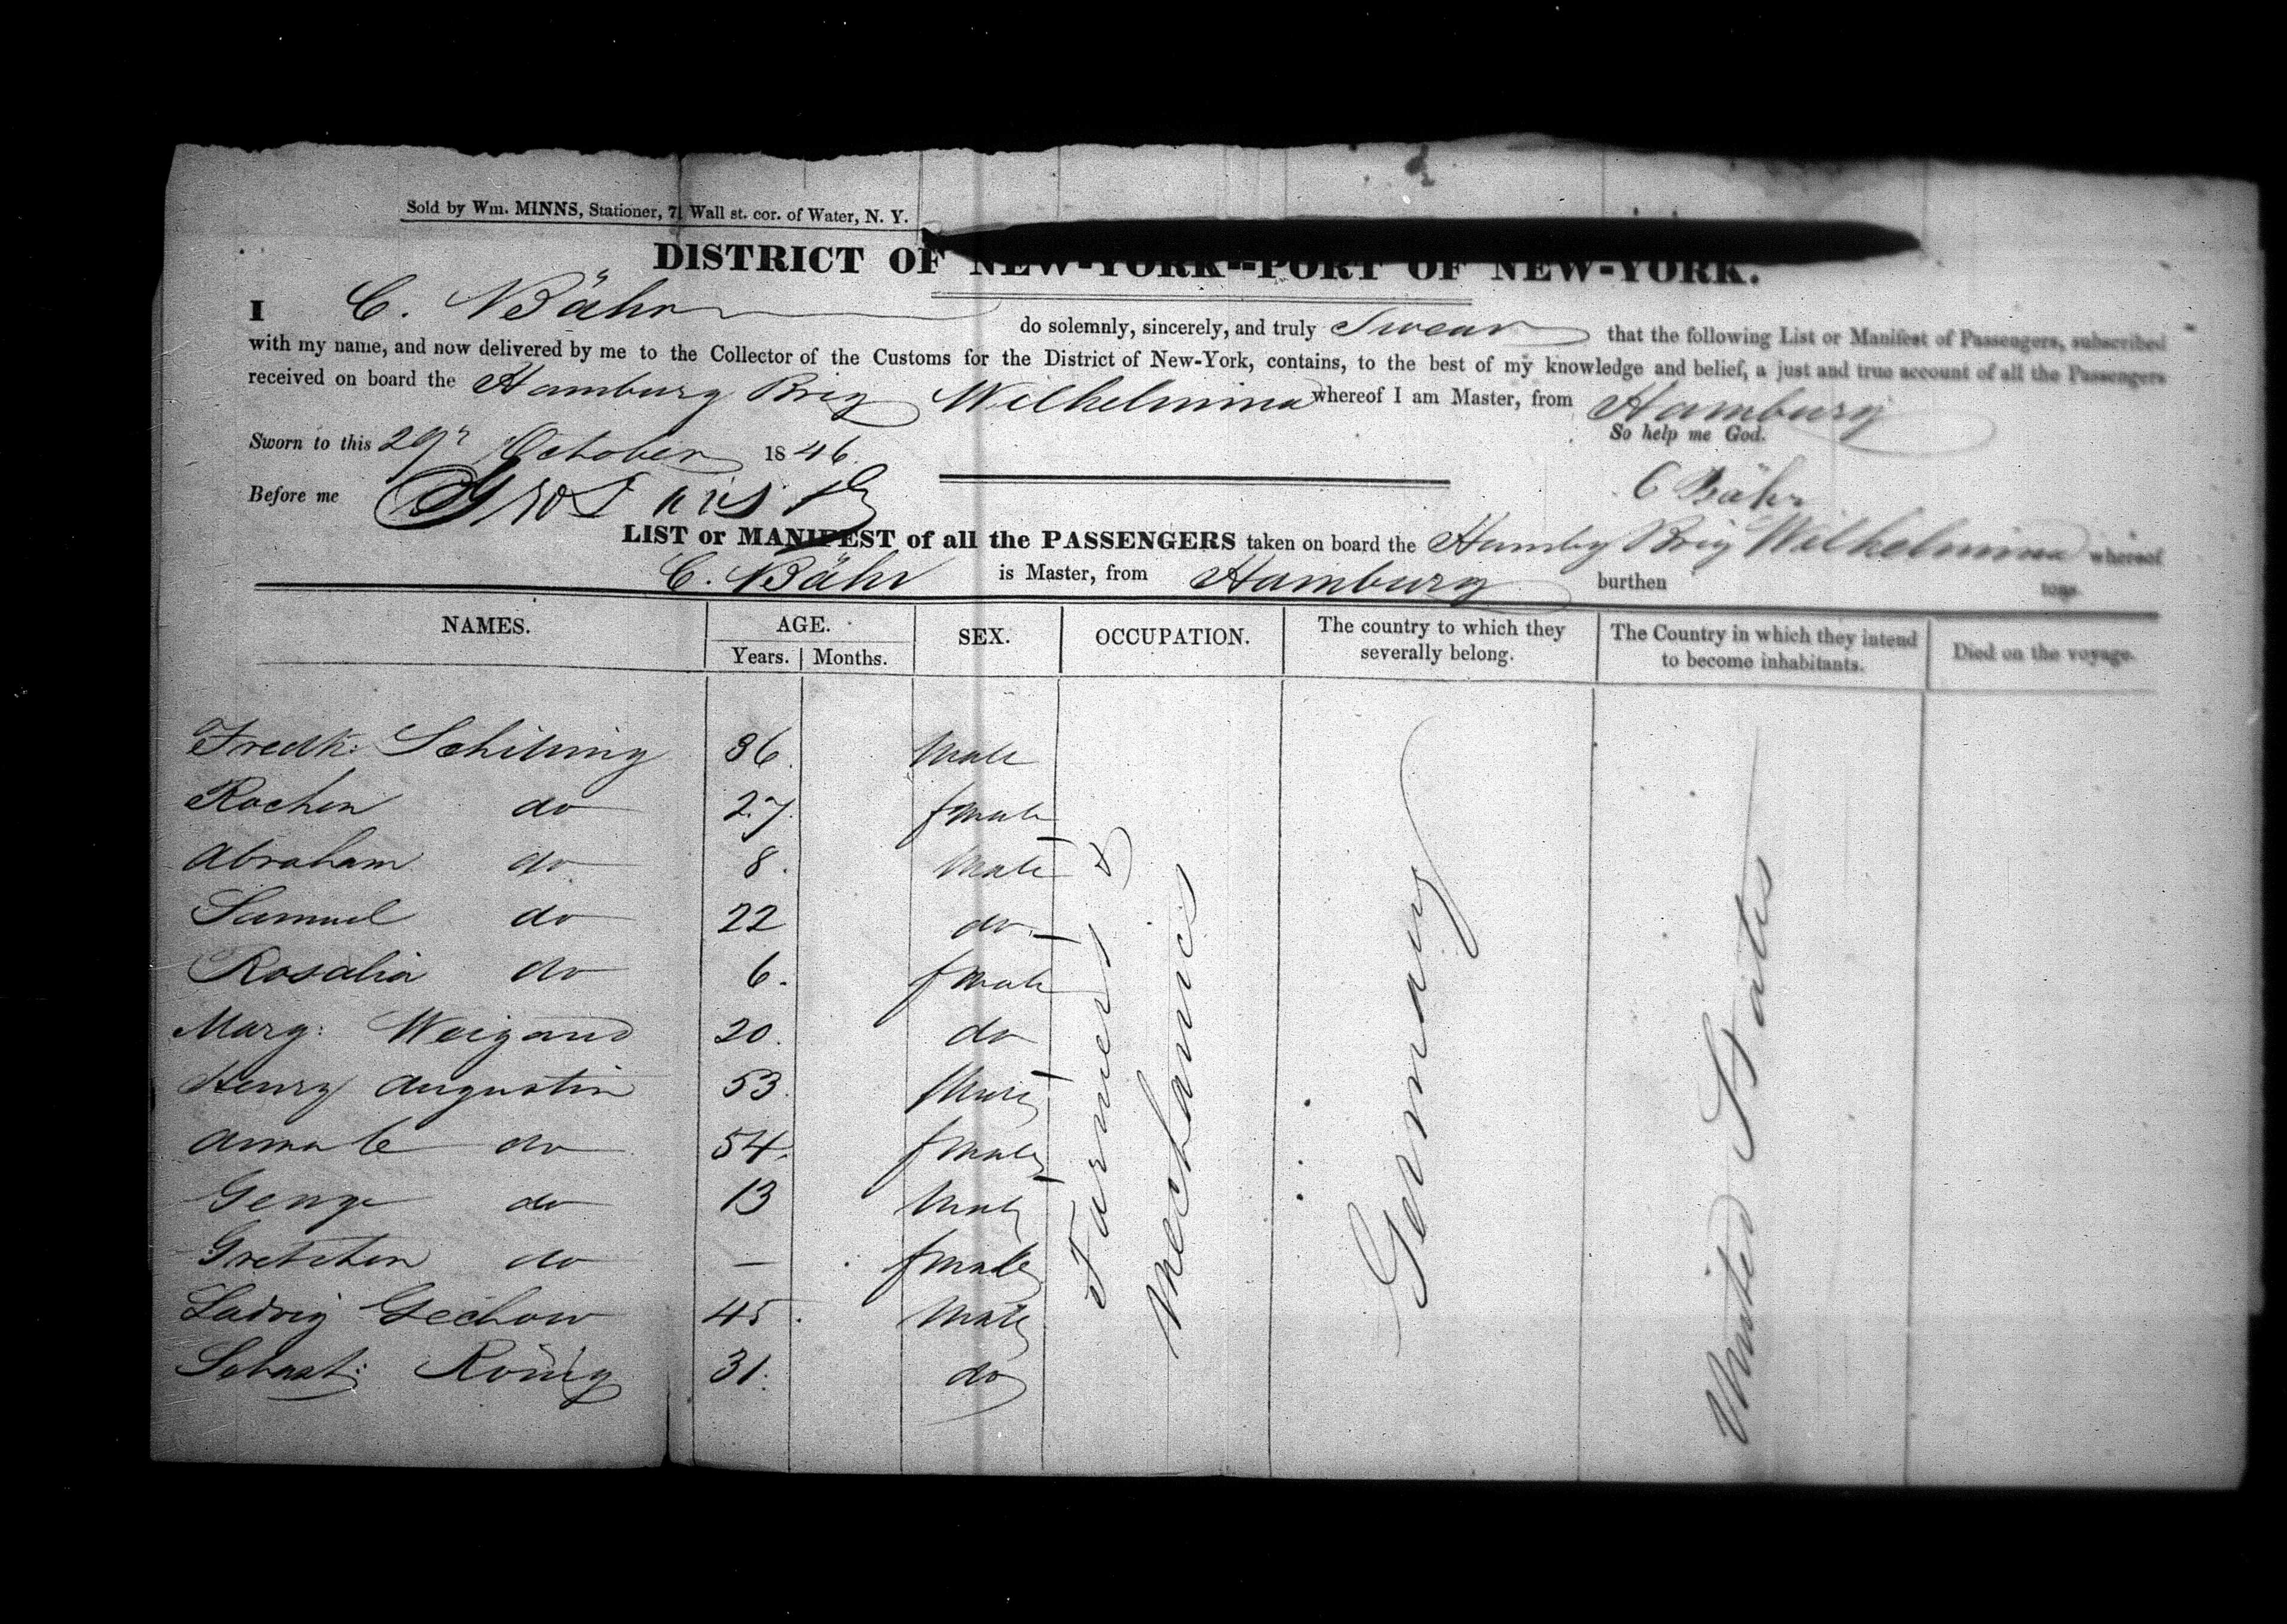 Sold by Wm. MINNS, Stationer, 71 Wall st. cor. of Water, N. Y.
DISTRICT OF NEW-YORK--PORT OF NEW-YORK.
I C. Bähr do solemnly, sincerely, and truly Swear that the following List or Manifest of Passengers, subscribed
with my name, and now delivered by me to the Collector of the Customs for the District of New-York, contains, to the best of my knowledge and belief, a just and true account of all the Passengers
received on board the Hamburg Brig Wilhelmina whereof I am Master, from Hamburg
Sworn to this 29" October 1846 So help me God.
Before me C Bähr
LIST or MANIFEST of all the PASSENGERS taken on board the Hambg Brig Wilhelmina whereof
C. Bähr is Master, from Hamburg burthen tons.
NAMES. AGE. Years. Months. SEX. OCCUPATION. The country to which they severally belong. The Country in which they intend to become inhabitants. Died on the voyage.
Fredk: Schilling 36. Male
Rochen do 27. female
Abraham do 8. Male
Samuel do 22 do
Rosalia do 6. female
Marg: Weigand 20. do
Henry Augustin 53. Male
Anna C do 54. female
George do 13 Male
Gretchen do — female
Ludwig Gechow 45. Male
Sebast: König 31. do
Farmers &
Mechanics
Germany
United States